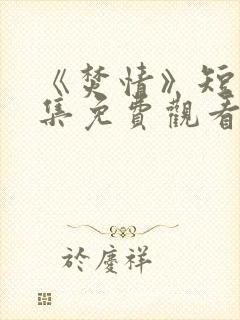 《焚情》短
集免費觀看
於慶祥